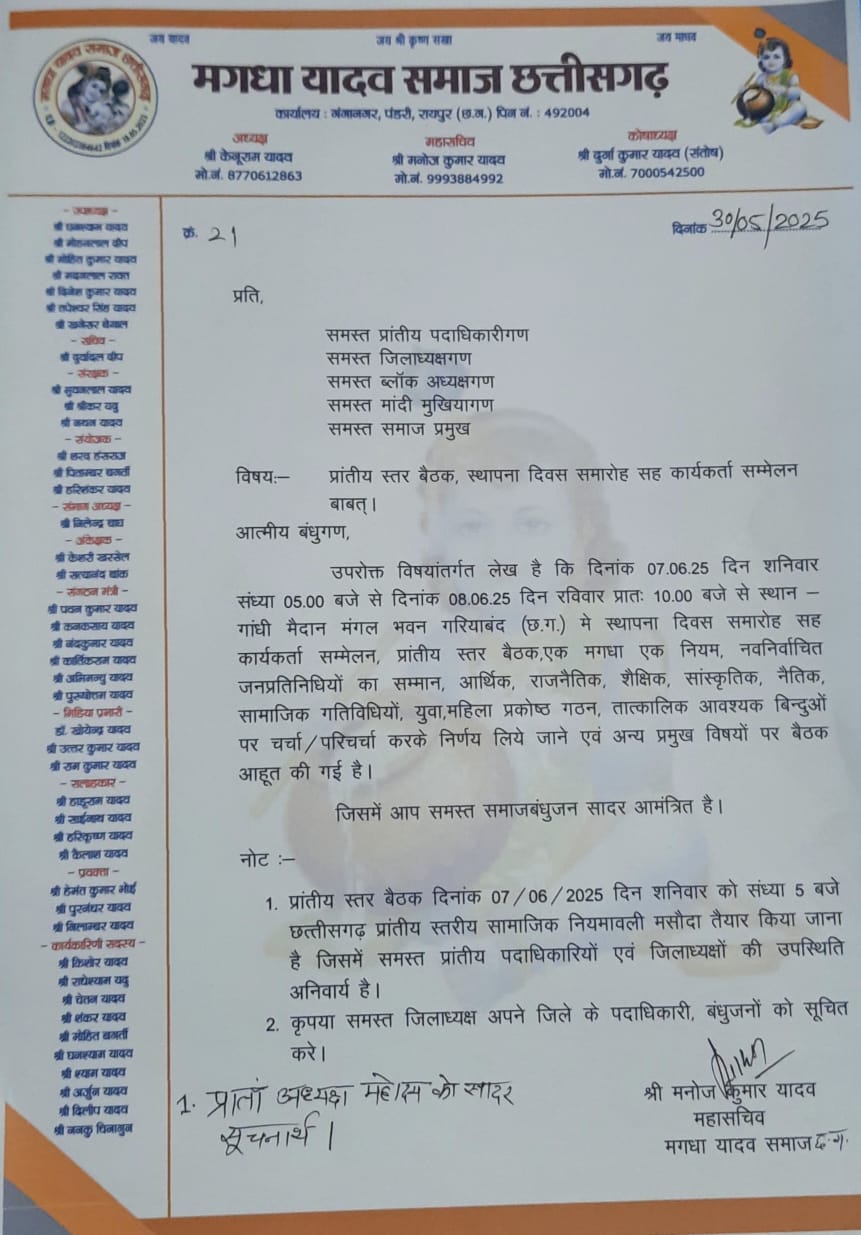 जय यादव
जय श्री कृष्ण सखा
जय माधव
मगधा यादव समाज छत्तीसगढ़
कार्यालय : गंगानगर, पंडरी, रायपुर (छ.ग.) पिन नं. : 492004
अध्यक्ष
श्री केनूराम यादव
मो.नं. 8770612863
महासचिव
श्री मनोज कुमार यादव
मो.नं. 9993884992
कोषाध्यक्ष
श्री दुर्गा कुमार यादव (संतोष)
मो.नं. 7000542500
क्रं. 21
दिनांक 30/05/2025
- उपाध्यक्ष -
श्री घनश्याम यादव
श्री मोहनलाल दीप
श्री मोहित कुमार यादव
श्री मदनलाल रावत
श्री दिनेश कुमार यादव
श्री तपेश्वर सिंह यादव
श्री खगेसर बेमाल
- सचिव -
श्री दुर्वादल दीप
- संरक्षक -
श्री भुवनलाल यादव
श्री श्रीकर यदु
श्री नयन यादव
- संयोजक -
श्री शरद हंसराज
श्री पिताम्बर बगर्ती
श्री हरिशंकर यादव
- संभाग अध्यक्ष -
श्री निलेन्द्र बाघ
- अंकेक्षक -
श्री केशरी खरसेल
श्री सत्यानंद बांक
- संगठन मंत्री -
श्री पवन कुमार यादव
श्री कनकराय यादव
श्री नंदकुमार यादव
श्री कार्तिकराम यादव
श्री अभिमन्यु यादव
श्री पुरुषोत्तम यादव
- मिडिया प्रभारी -
डॉ. खोगेन्द्र यादव
श्री उत्तर कुमार यादव
श्री राम कुमार यादव
- सलाहकार -
श्री हाडूराम यादव
श्री साईनाथ यादव
श्री हरिकृष्ण यादव
श्री कैलाश यादव
- प्रवक्ता -
श्री हेमंत कुमार भोई
श्री पुरनधर यादव
श्री निलाम्बर यादव
- कार्यकारिणी सदस्य -
श्री किशोर यादव
श्री राधेश्याम यदु
श्री चेतन यादव
श्री शंकर यादव
श्री मोहित बगर्ती
श्री घनश्याम यादव
श्री श्याम यादव
श्री अर्जुन यादव
श्री दिलीप यादव
श्री ननकु चिनागुन
प्रति,
समस्त प्रांतीय पदाधिकारीगण
समस्त जिलाध्यक्षगण
समस्त ब्लॉक अध्यक्षगण
समस्त मांदी मुखियागण
समस्त समाज प्रमुख
विषयः– प्रांतीय स्तर बैठक, स्थापना दिवस समारोह सह कार्यकर्ता सम्मेलन
बाबत्।
आत्मीय बंधुगण,
उपरोक्त विषयांतर्गत लेख है कि दिनांक 07.06.25 दिन शनिवार
संध्या 05.00 बजे से दिनांक 08.06.25 दिन रविवार प्रातः 10.00 बजे से स्थान –
गांधी मैदान मंगल भवन गरियाबंद (छ.ग.) मे स्थापना दिवस समारोह सह
कार्यकर्ता सम्मेलन, प्रांतीय स्तर बैठक,एक मगधा एक नियम, नवनिर्वाचित
जनप्रतिनिधियों का सम्मान, आर्थिक, राजनैतिक, शैक्षिक, सांस्कृतिक, नैतिक,
सामाजिक गतिविधियों, युवा,महिला प्रकोष्ठ गठन, तात्कालिक आवश्यक बिन्दुओं
पर चर्चा/परिचर्चा करके निर्णय लिये जाने एवं अन्य प्रमुख विषयों पर बैठक
आहूत की गई है।
जिसमें आप समस्त समाजबंधुजन सादर आमंत्रित है।
नोट :–
1. प्रांतीय स्तर बैठक दिनांक 07/06/2025 दिन शनिवार को संध्या 5 बजे
छत्तीसगढ़ प्रांतीय स्तरीय सामाजिक नियमावली मसौदा तैयार किया जाना
है जिसमें समस्त प्रांतीय पदाधिकारियों एवं जिलाध्यक्षों की उपस्थिति
अनिवार्य है।
2. कृपया समस्त जिलाध्यक्ष अपने जिले के पदाधिकारी, बंधुजनों को सूचित
करे।
1. प्रातां अध्यक्ष महोदय को सादर
सूचनार्थ।
श्री मनोज कुमार यादव
महासचिव
मगधा यादव समाज छ.ग.